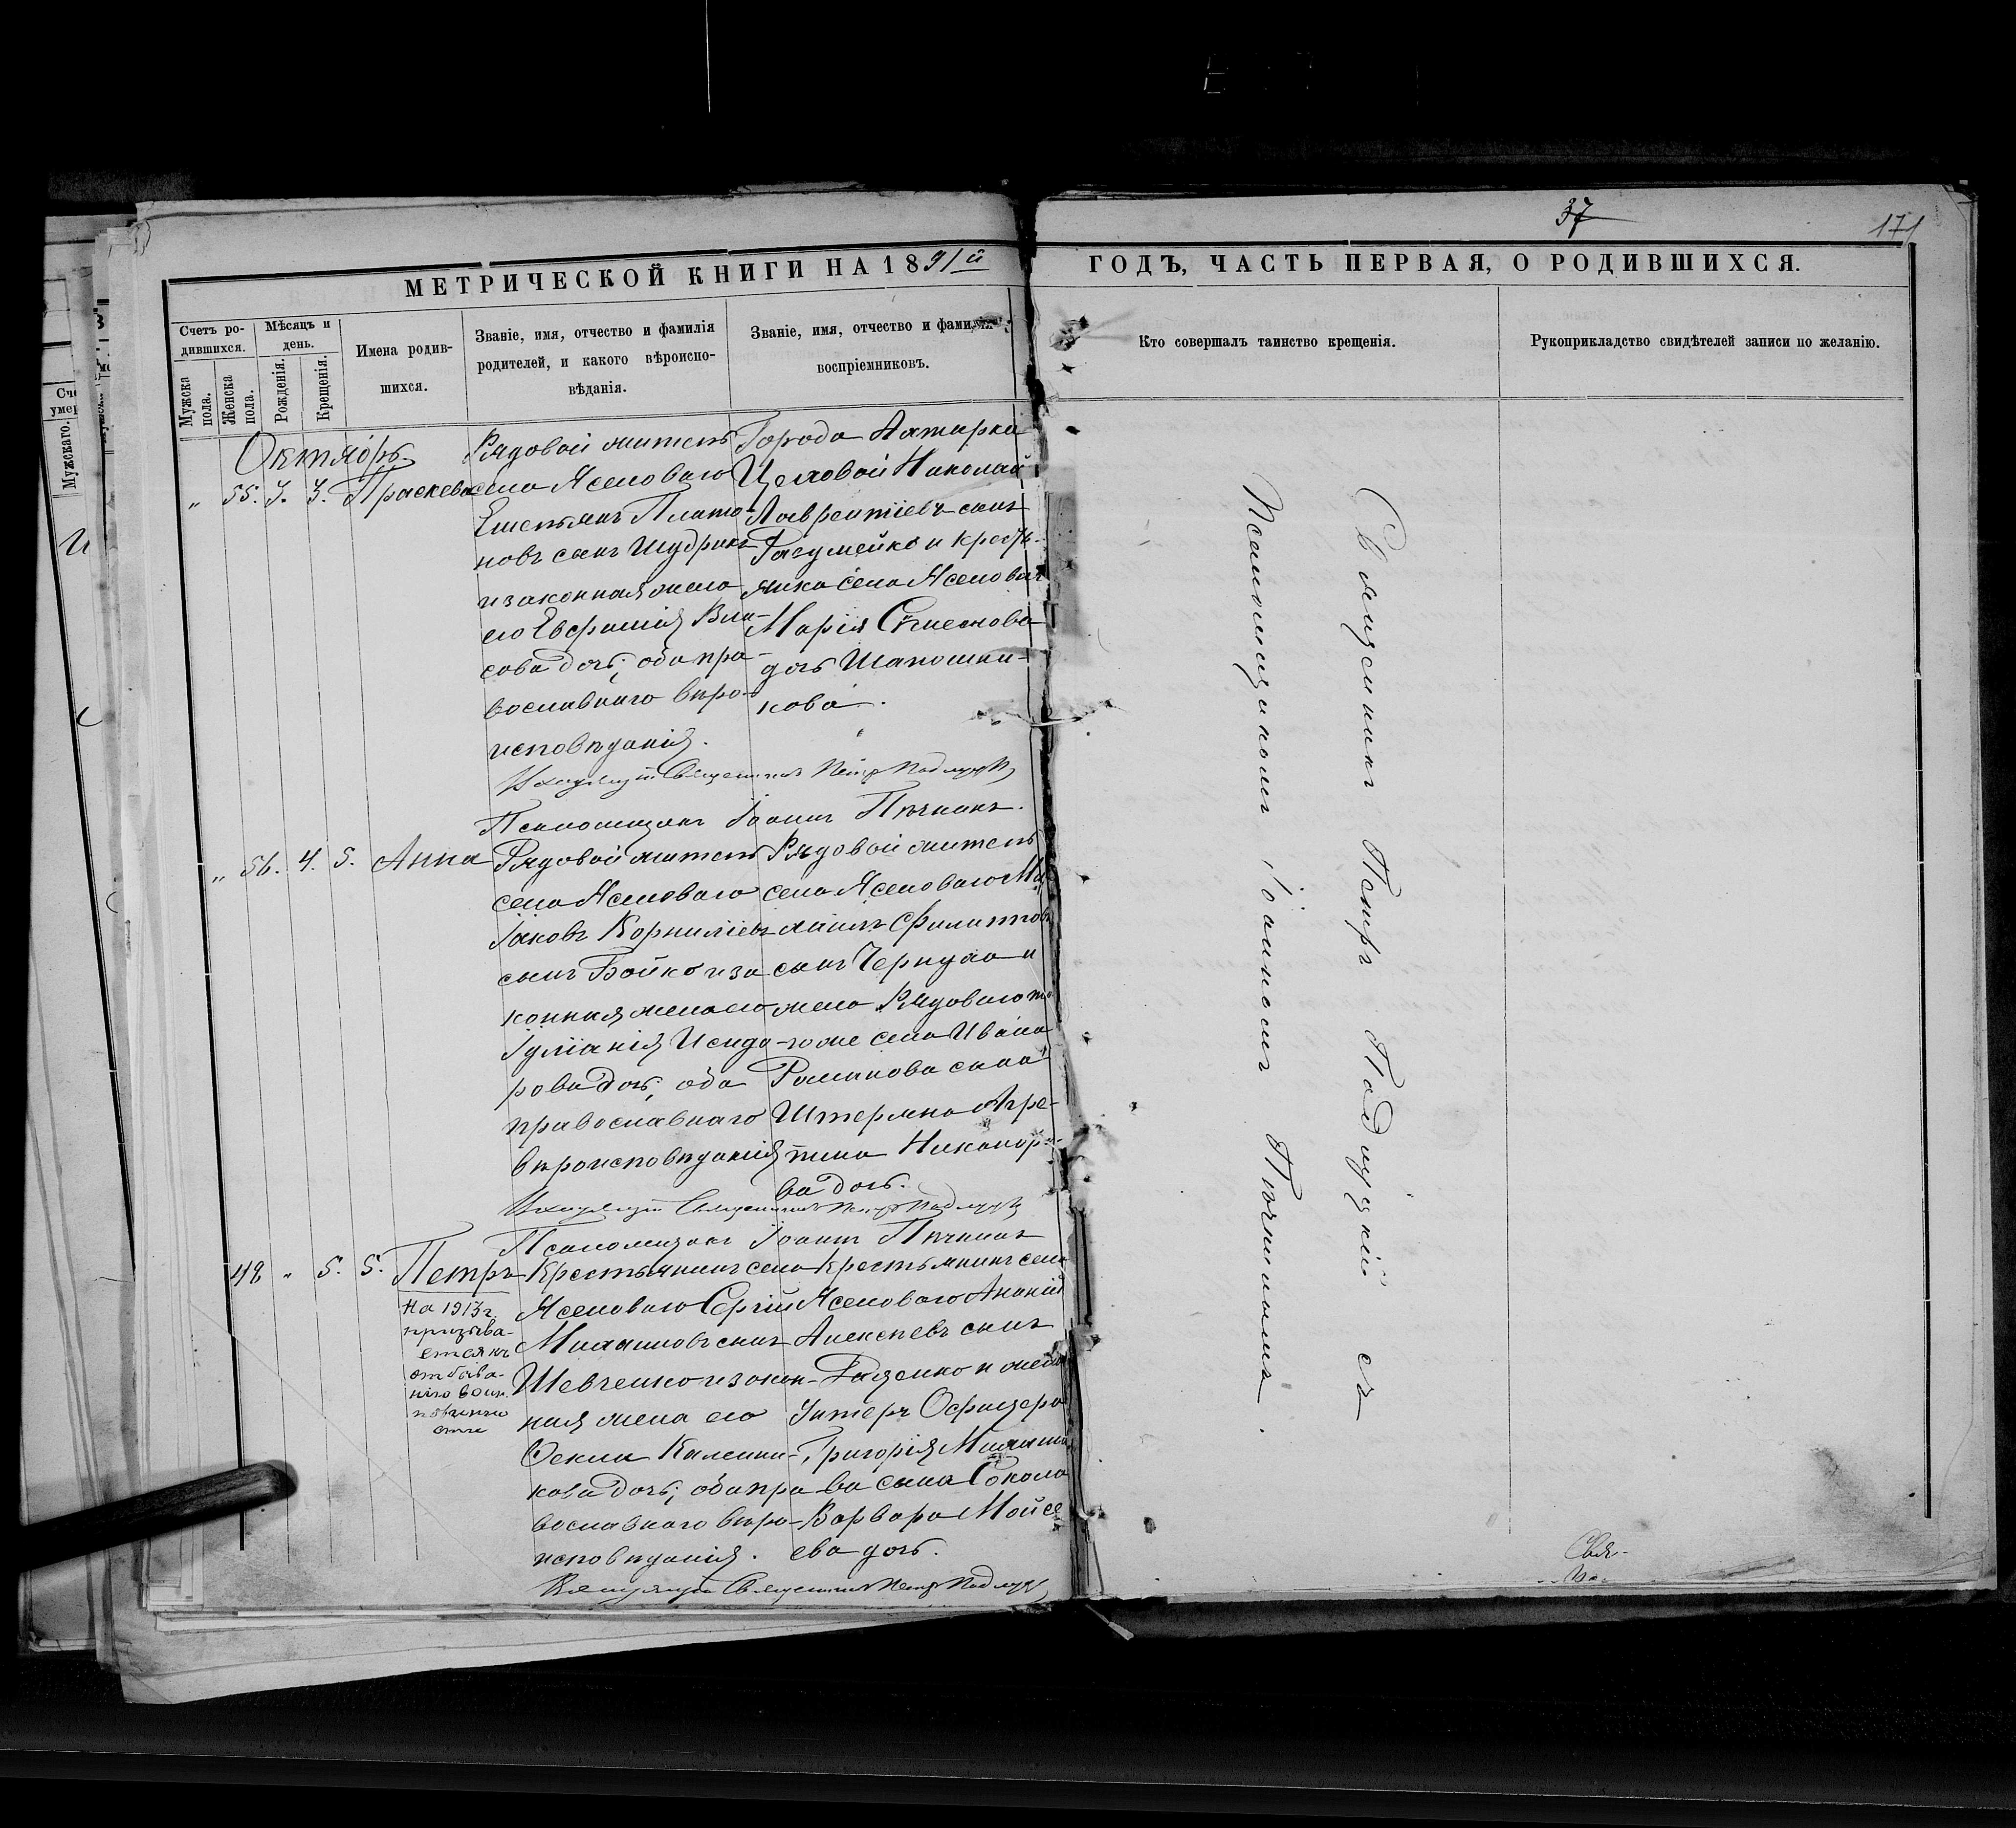 37
171
МЕТРИЧЕСКОЙ КНИГИ НА 1891й
ГОДЪ, ЧАСТЬ ПЕРВАЯ, О РОДИВШИХСЯ.
Счетъ ро-
дившихся.
Мужска
пола.
Женска
пола.
Мѣсяцъ и
день.
Рожденія.
Крещенія.
Имена родив-
шихся.
Званіе, имя, отчество и фамилія
родителей, и какого вѣроиспо-
вѣданія.
Званіе, имя, отчество и фамилія
воспріемниковъ.
Кто совершалъ таинство крещенія.
Рукоприкладство свидѣтелей записи по желанію.
Октябрь
„ 55. 3. 3. Праскева
Рядовой житель
села Ясеноваго
Емельянъ Плато-
новъ сынъ Щудрикъ
и законная жена
его Евфимія Вла-
сова дочь; оба пра-
вославнаго вѣро-
исповѣданія.
Города Ахтырки
Цеховой Николай
Лаврентіевъ сынъ
и кресть-
янка села Ясеноваго
Марія
дочь Шапошни-
кова.
Священникъ Петръ
Псаломщикъ Іоаннъ Пѣчникъ.
„ 56. 4. 5. Анна
Рядовой житель
села Ясеноваго
Іаковъ Корниліевъ
сынъ Бойко и за
конная жена его
Іуліанія Исидо-
рова дочь, оба
православнаго
вѣроисповѣданія
Рядовой житель
села Ясеноваго Ми
хаилъ Филиппов
сынъ и
жена Рядоваго то
го же села Ивана
Романова сына
Штерлина Агре-
пина Никаноро-
ва дочь.
Священникъ Петръ
Псаломщикъ Іоаннъ Пѣчникъ
42 „ 5. 5. Петръ
На 1913 г.
призыва-
ется къ
отбыва-
нію воин.
повинно
сти
Крестьянинъ села
Ясеноваго Сергій
сынъ
Шевченко и закон-
ная жена его
Ѳекла Калени-
кова дочь; оба пра
вославнаго вѣро-
исповѣданія.
Крестьянинъ села
Ясеноваго Ананій
Алексѣевъ сынъ
и жена
Унтеръ Офицера
Григорія
ва сына Сокола
Варвара Мойсе
ева дочь.
Священникъ Петръ
Священникъ Петръ Подлуцкій съ
Псаломщикомъ Іоанномъ Пѣчникомъ.
Свя-